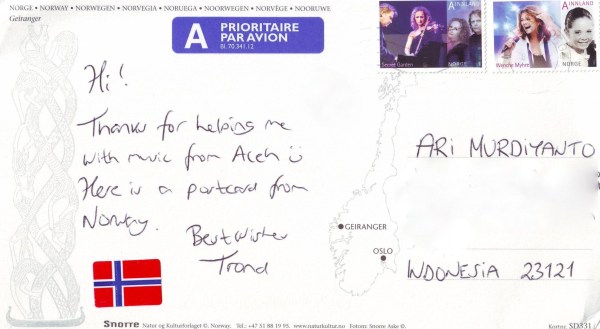 NORGE • NORWAY • NORWEGEN • NORVEGIA • NORUEGA • NOORWEGEN • NORVÈGE • NOORUWE
Geiranger
A PRIORITAIRE
PAR AVION
Bl. 70.341.12
A INNLAND
Secret Garden
NORGE
A INNLAND
Wenche Myhre
NORGE
Hi!
Thanks for helping me
with music from Aceh
Here is a postcard from
Norway.
Best wishes
Trond
ARI MURDIYANTO
INDONESIA 23121
GEIRANGER
OSLO
Snorre Natur og Kulturforlaget ©. Norway. Tel.: +47 51 88 19 95. www.naturkultur.no Foto©: Snorre Aske ©.
Kortnr. SD331